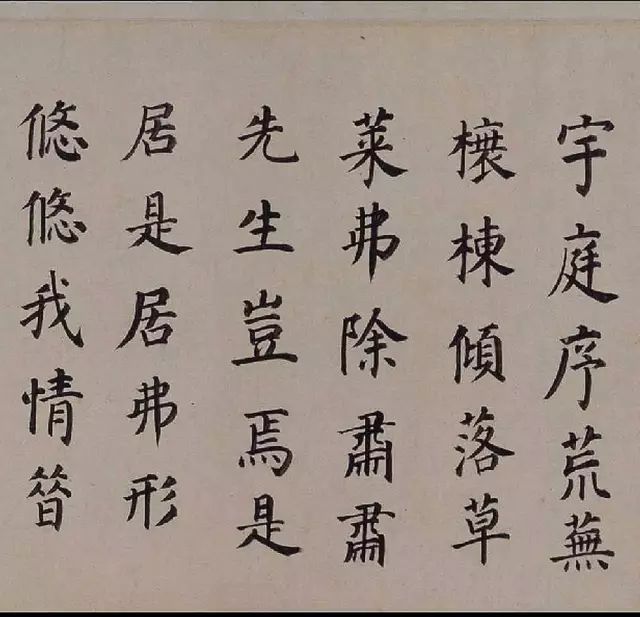 宇庭序荒蕪
榱棟傾落草
萊弗除肅肅
先生豈焉是
居是居弗形
悠悠我情昔